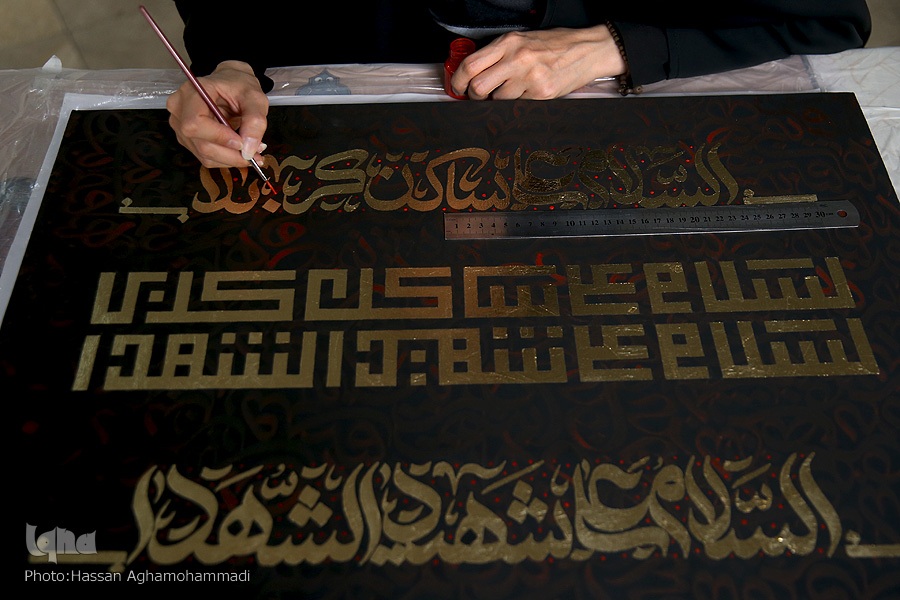 السلام علی ساکن کربلا
السلام علی ساکن کربلا
السلام علی شهید الشهدا
السلام علی شهید الشهدا
1 2 3 4 5 6 7 8 9 10 11 12 13 14 15 16 17 18 19 20 21 22 23 24 25 26 27 28 29 30
iqna
Photo:Hassan Aghamohammadi